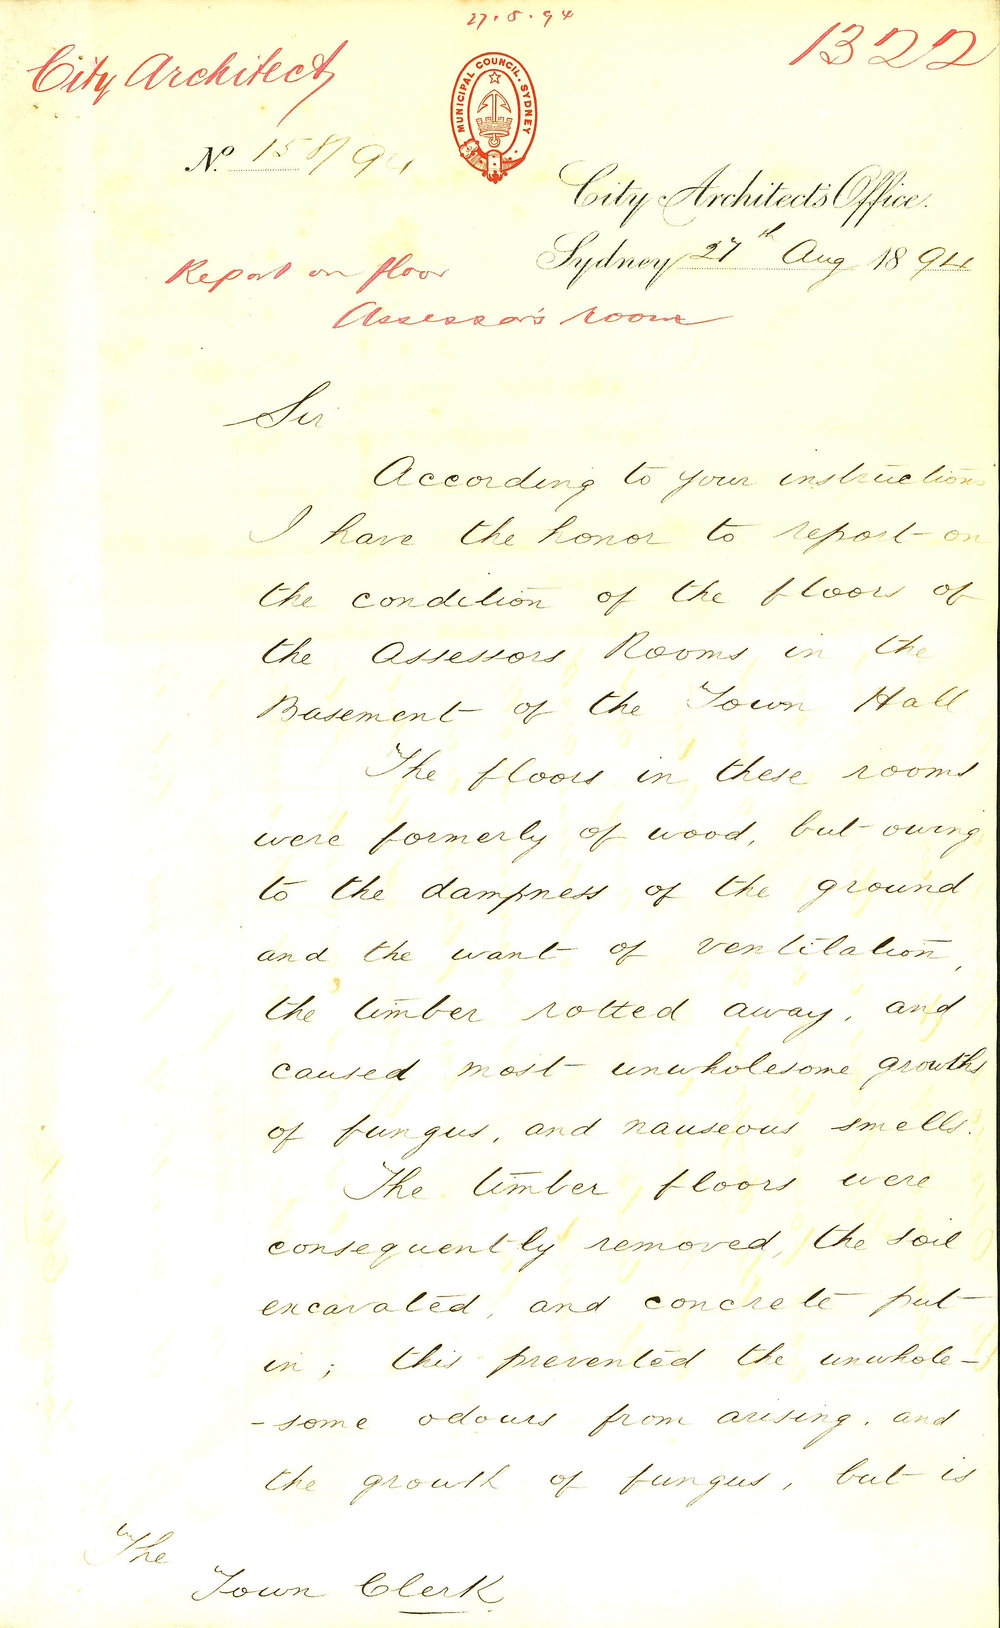 27.8.94
1322
City Architect
MUNICIPAL COUNCIL. SYDNEY
No. 158/94
City Architect's Office.
Sydney 27th Aug 1894
Report on floor
Assessor's room
Sir
According to your instructions
I have the honor to report on
the condition of the floors of
the Assessors Rooms in the
Basement of the Town Hall
The floors in these rooms
were formerly of wood, but owing
to the dampness of the ground
and the want of ventilation,
the timber rotted away, and
caused most unwholesome growths
of fungus, and nauseous smells.
The timber floors were
consequently removed, the soil
excavated, and concrete put
in; this prevented the unwhole-
-some odours from arising, and
the growth of fungus, but is
The
Town Clerk